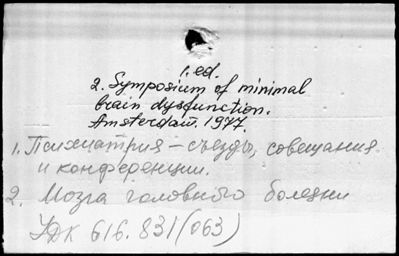 1.ed.
2. Symposium of minimal
brain dysfunction.
Amsterdam. 1977.
1. Психиатрия – съезды, совещания
и конференции.
2. Мозга головного болезни
УДК 616.831(063)